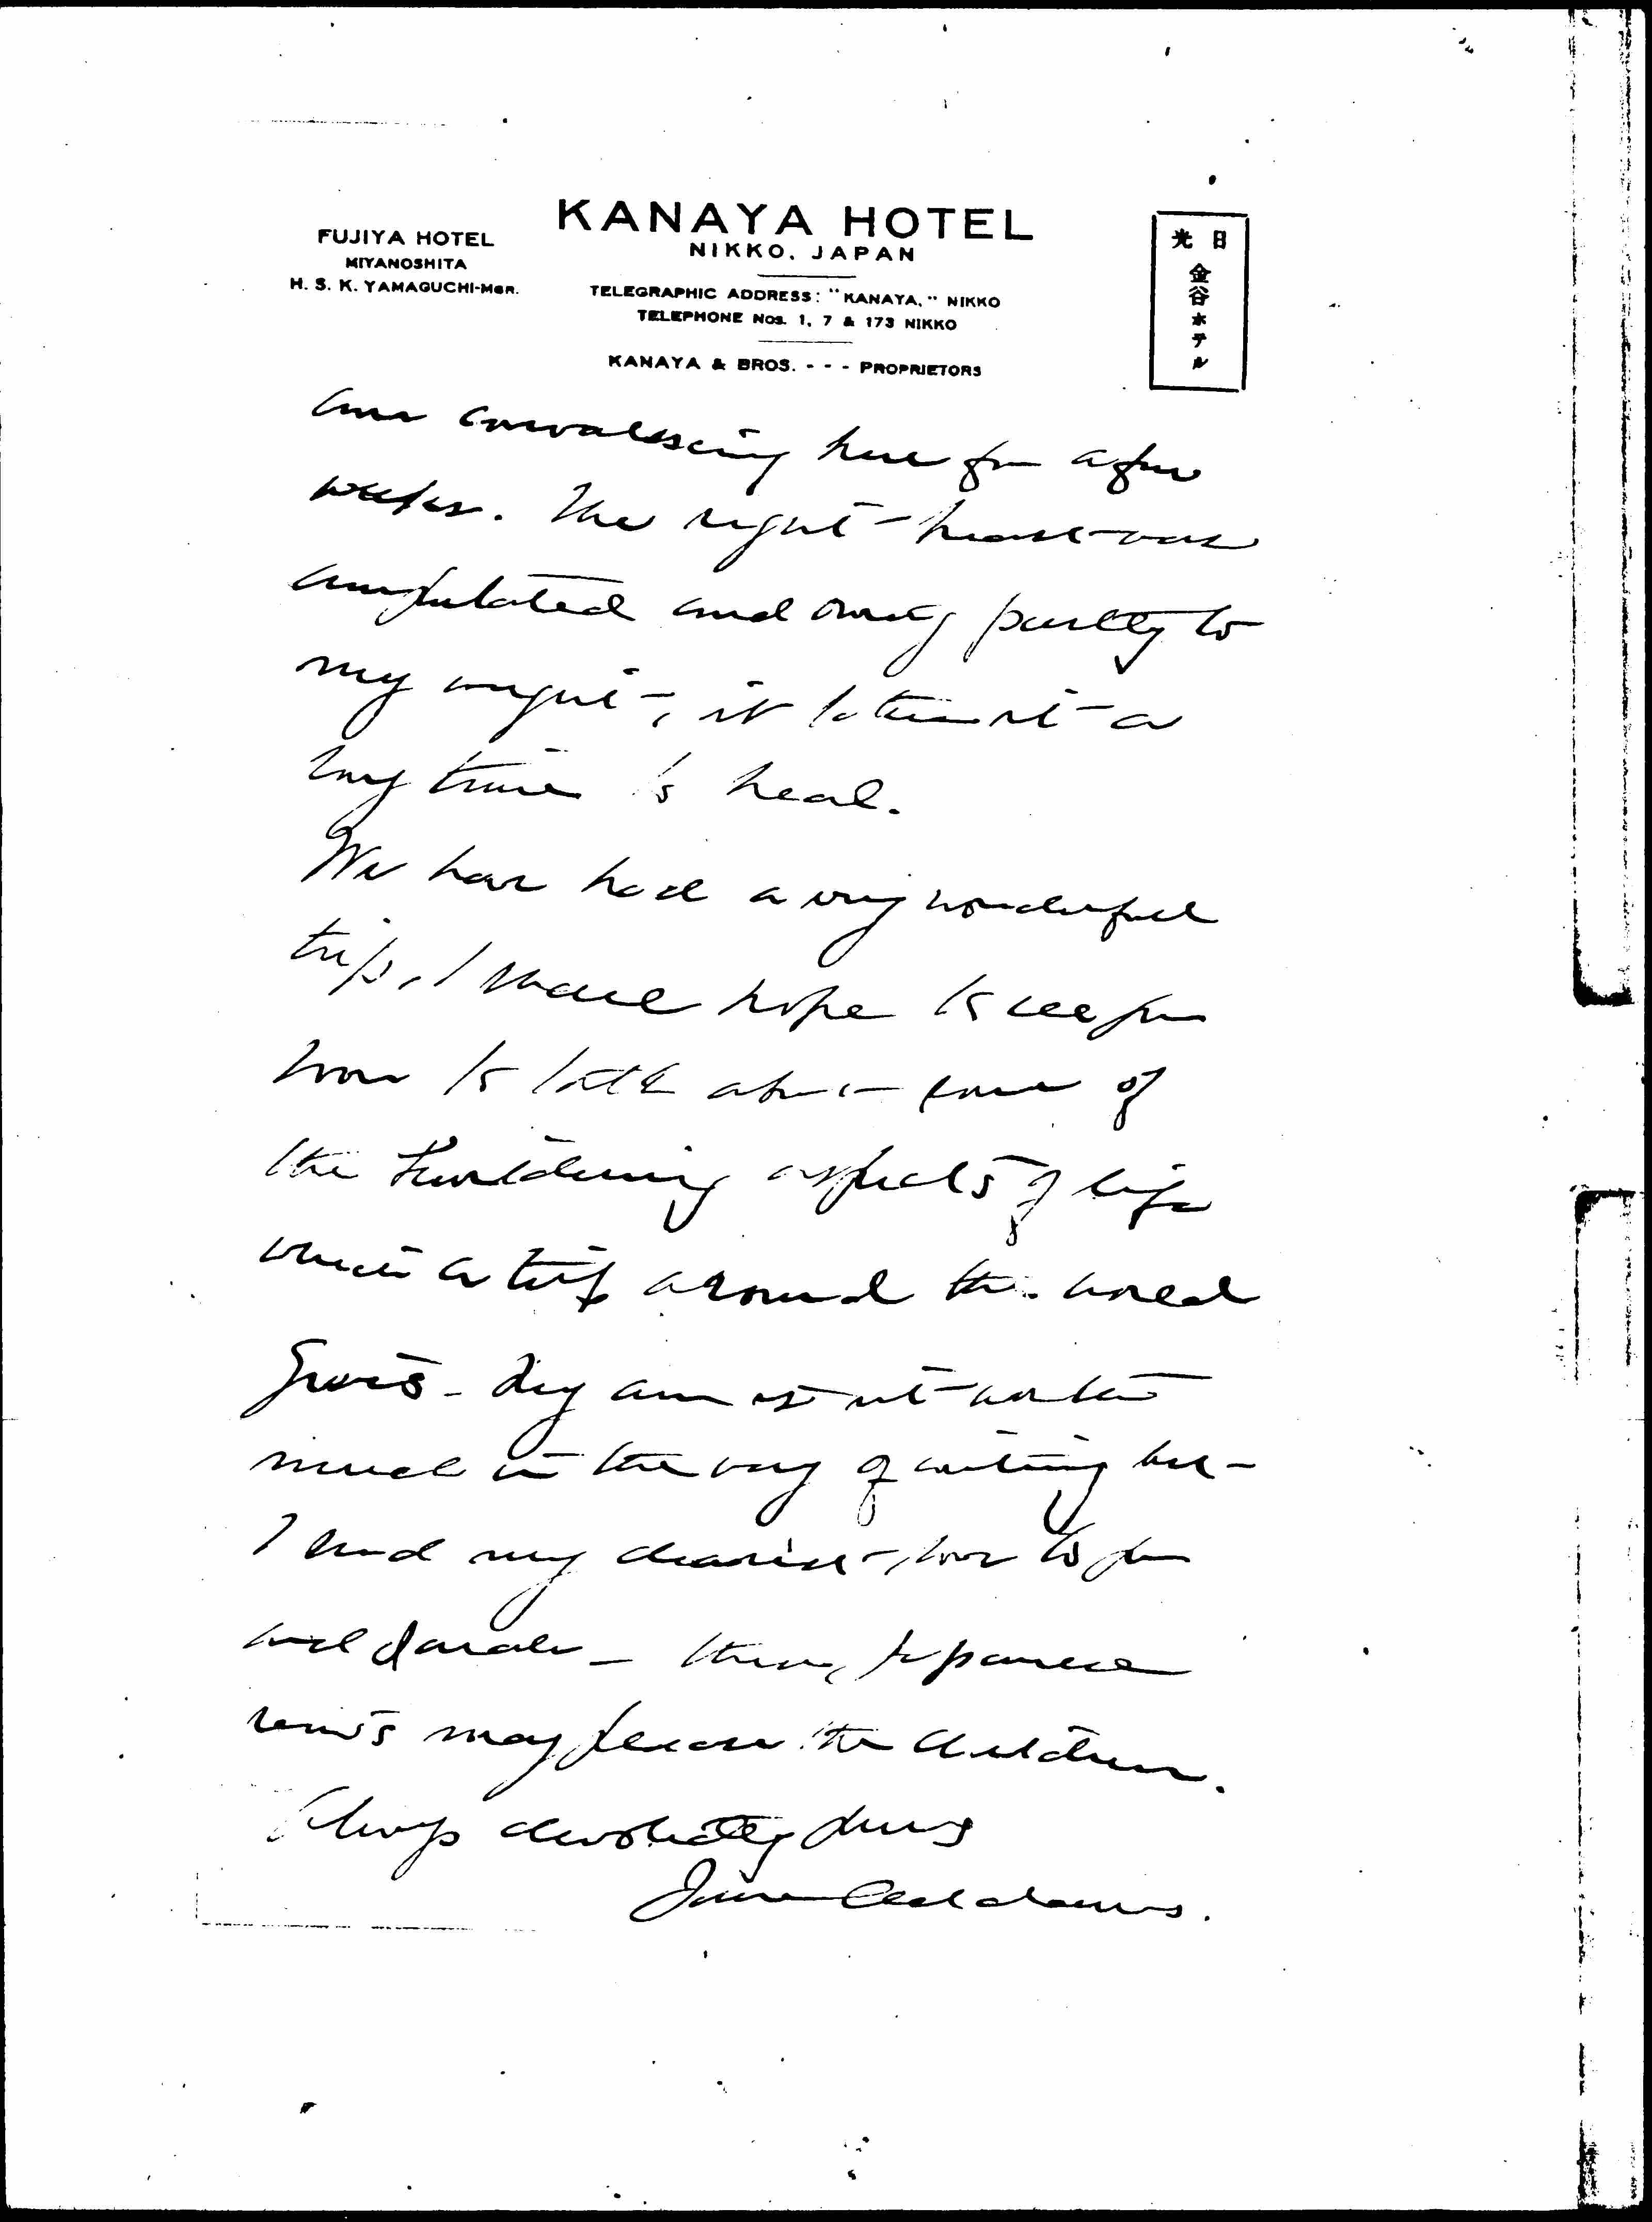 KANAYA HOTEL
NIKKO, JAPAN
FUJIYA HOTEL
MIYANOSHITA
H. S. K. YAMAGUCHI-MGR.
TELEGRAPHIC ADDRESS: "KANAYA," NIKKO
TELEPHONE NOS. 1, 7 & 173 NIKKO
KANAYA & BROS. - - - PROPRIETORS
日光
金谷ホテル
am convalescing here for a few
weeks. The right breast was
amputated and owing partly to
my weight, it takes it a
long time to heal.
We have had a very wonderful
trip, I shall hope to see you
soon to talk about some of
the bewildering aspects of life
which a trip around the world
gives. My arm is not worth
much in the way of writing but
I send my dearest love to you
and Sarah - these Japanese
may please the children.
Always devotedly yours
Jane Addams.